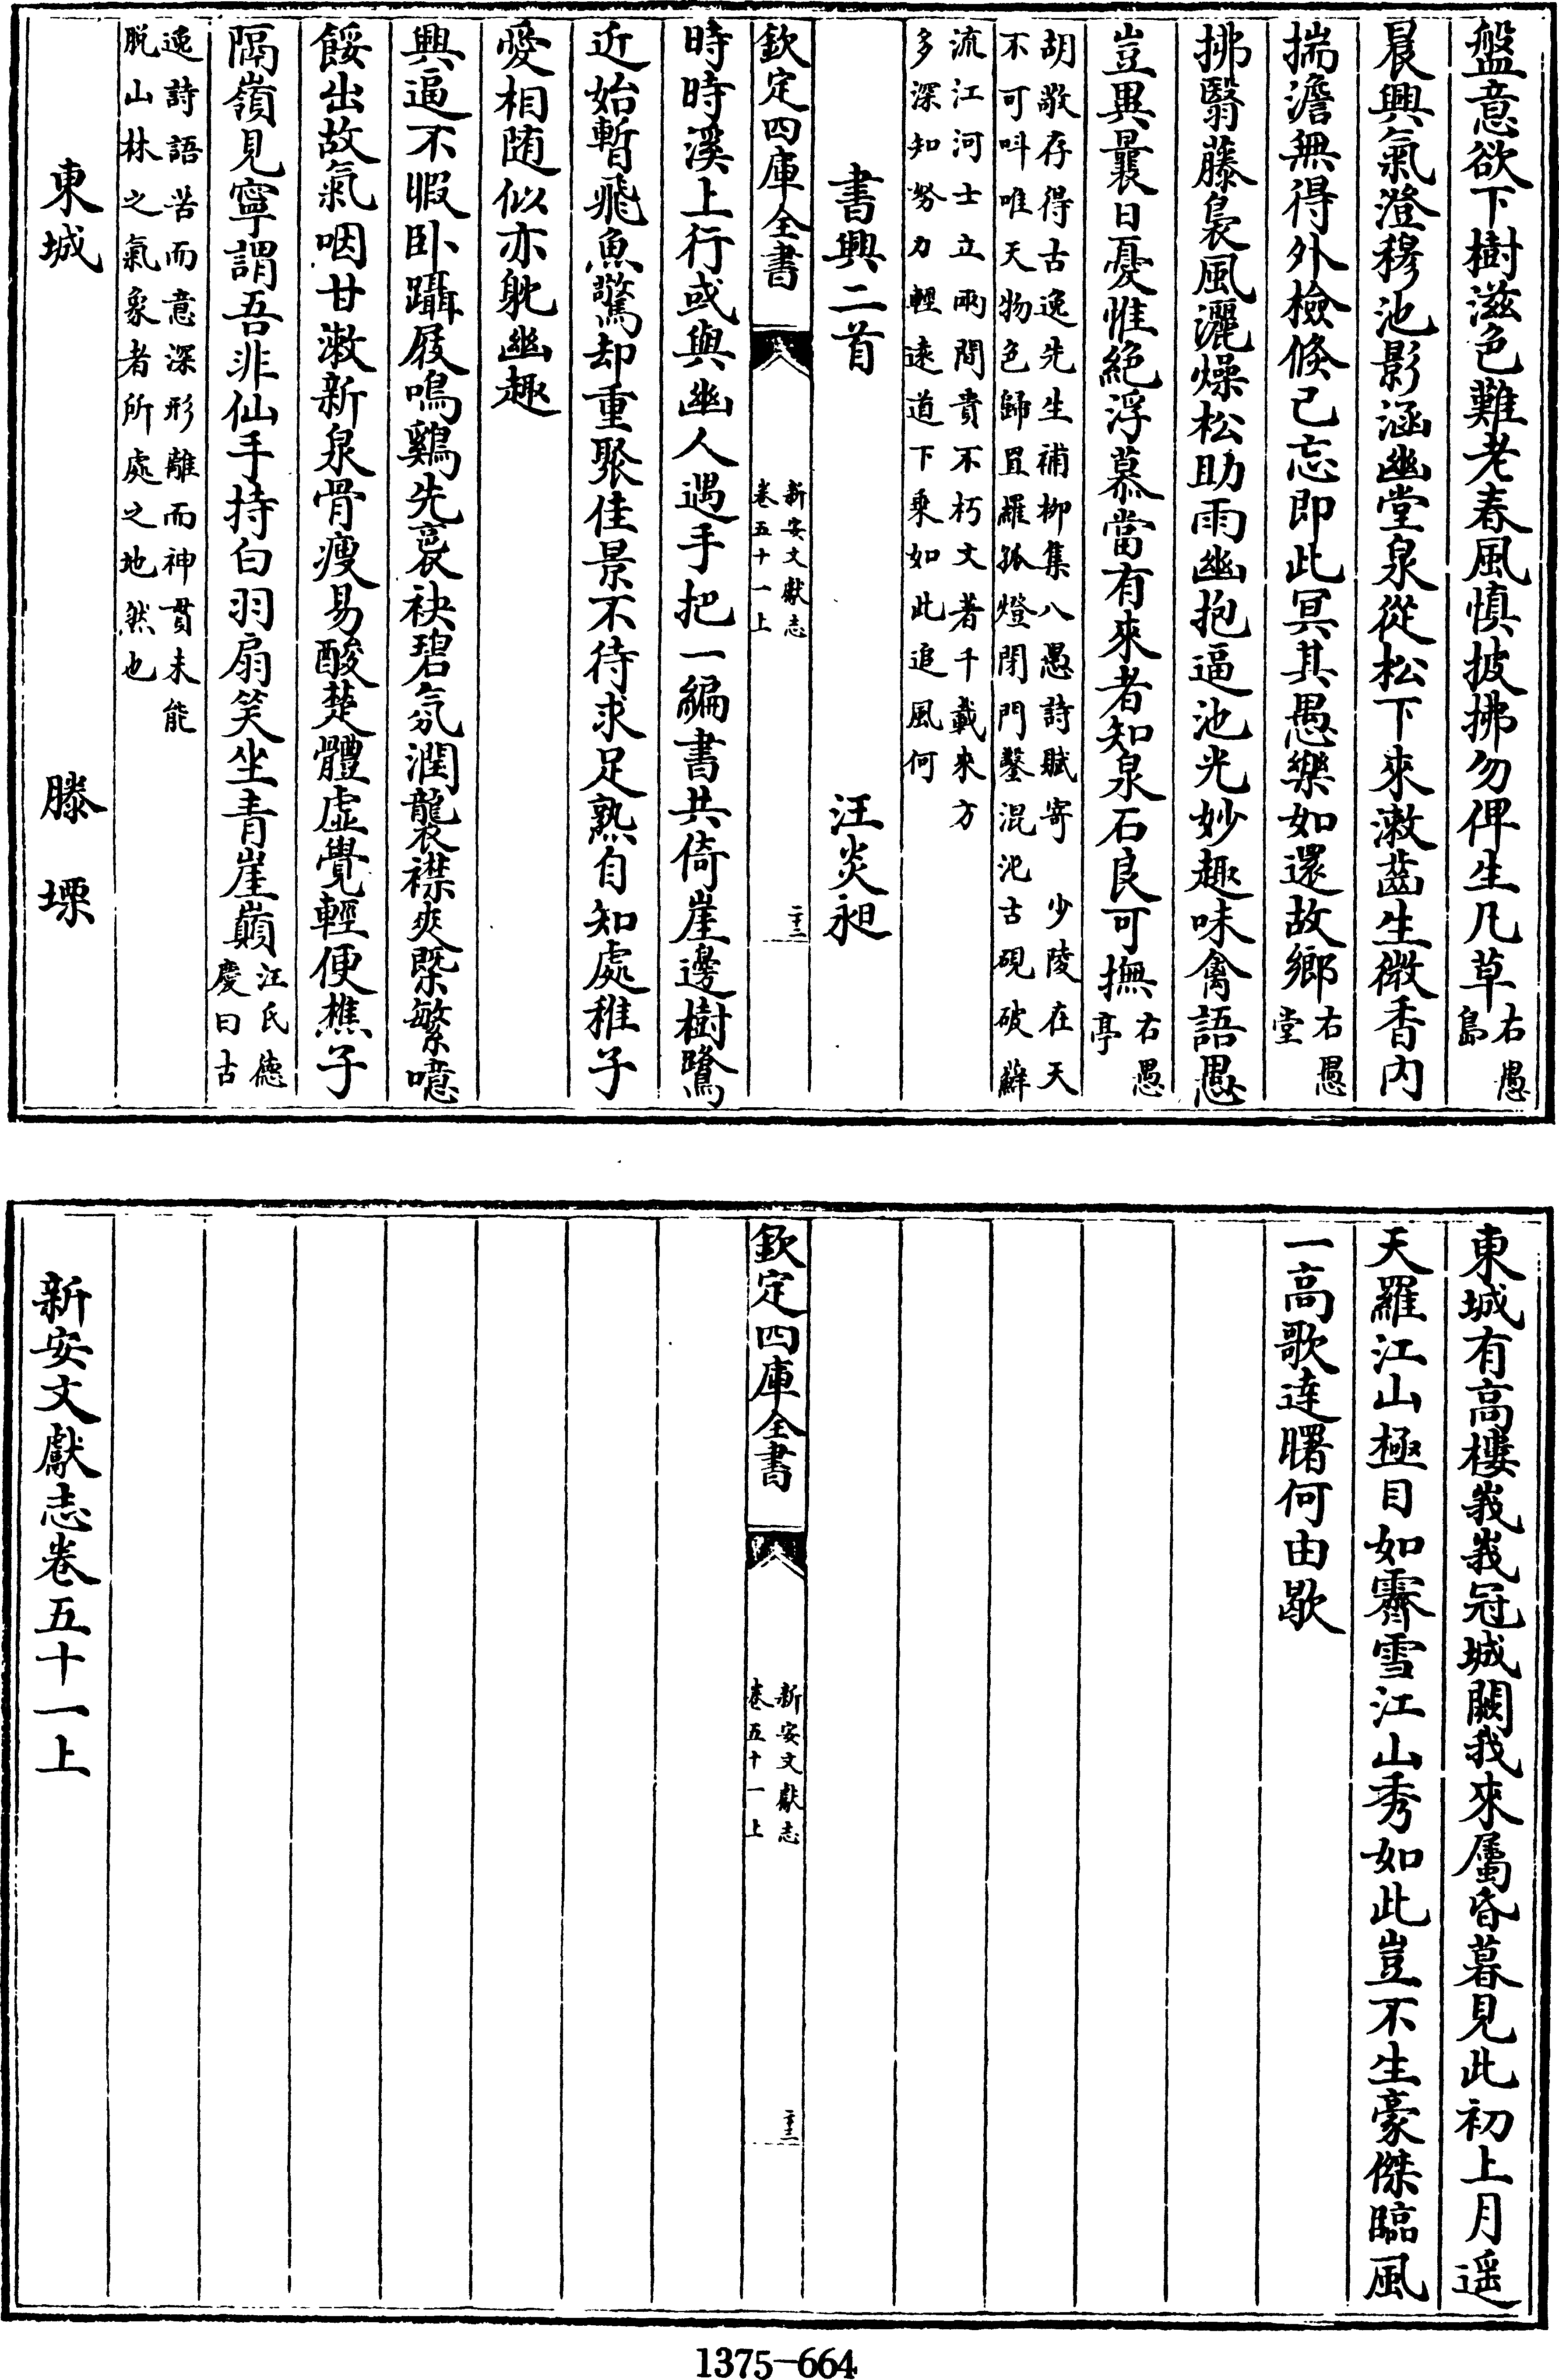 盤意欲下樹滋色難老春風慎披拂勿俾生凡草右愚島
晨興氣澄穆池影涵幽堂泉從松下來漱齒生微香内
揣澹無得外檢倐已忘即此冥其愚樂如還故鄉右愚堂
拂翳藤裊風灑燥松助雨幽抱逼池光妙趣味禽語愚
豈異曩日憂惟絶浮慕當有來者知泉石良可撫右愚亭
胡敬存得古逸先生補柳集八愚詩賦寄 少陵在天
不可呌唯天物色歸罝羅孤燈閉門鑿混沌古硯破蘚
流江河士立兩間貴不朽文著千載來方
多深知努力輕遠道下乘如此追風何
書興二首 汪炎昶
欽定四庫全書 新安文獻志卷五十一上
時時溪上行或與幽人遇手把一編書共倚崖邊樹鷺
近始暫飛魚驚却重聚佳景不待求足熟自知處稚子
愛相随似亦躭幽趣
興逼不暇卧躡屐鳴鷄先裛袂碧氛潤襲襟爽既繁噫
餒出故氣咽甘漱新泉骨瘦易酸楚體虛覺輕便樵子
隔嶺見寧謂吾非仙手持白羽扇笑坐青崖巔汪氏德慶曰古
逸詩語苦而意深形離而神貫未能
脱山林之氣象者所處之地然也
東城 滕塛
東城有高樓峩峩冠城闕我來屬昏暮見此初上月遥
天羅江山極目如霽雪江山秀如此豈不生豪傑臨風
一高歌達曙何由歇
欽定四庫全書 新安文獻志卷五十一上
新安文獻志卷五十一上
1375-664